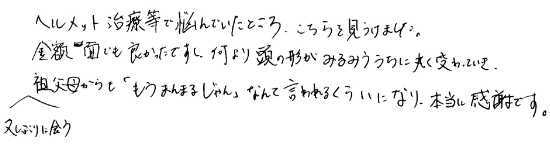 ヘルメット治療等で悩んでいたところ、こちらを見つけました。
金額面でも良かったですし、何より頭の形がみるみるうちに丸く変わっていき、
祖父母からも「もうまんまるじゃん」なんて言われるくらいになり、本当に感謝です。
久しぶりに会う